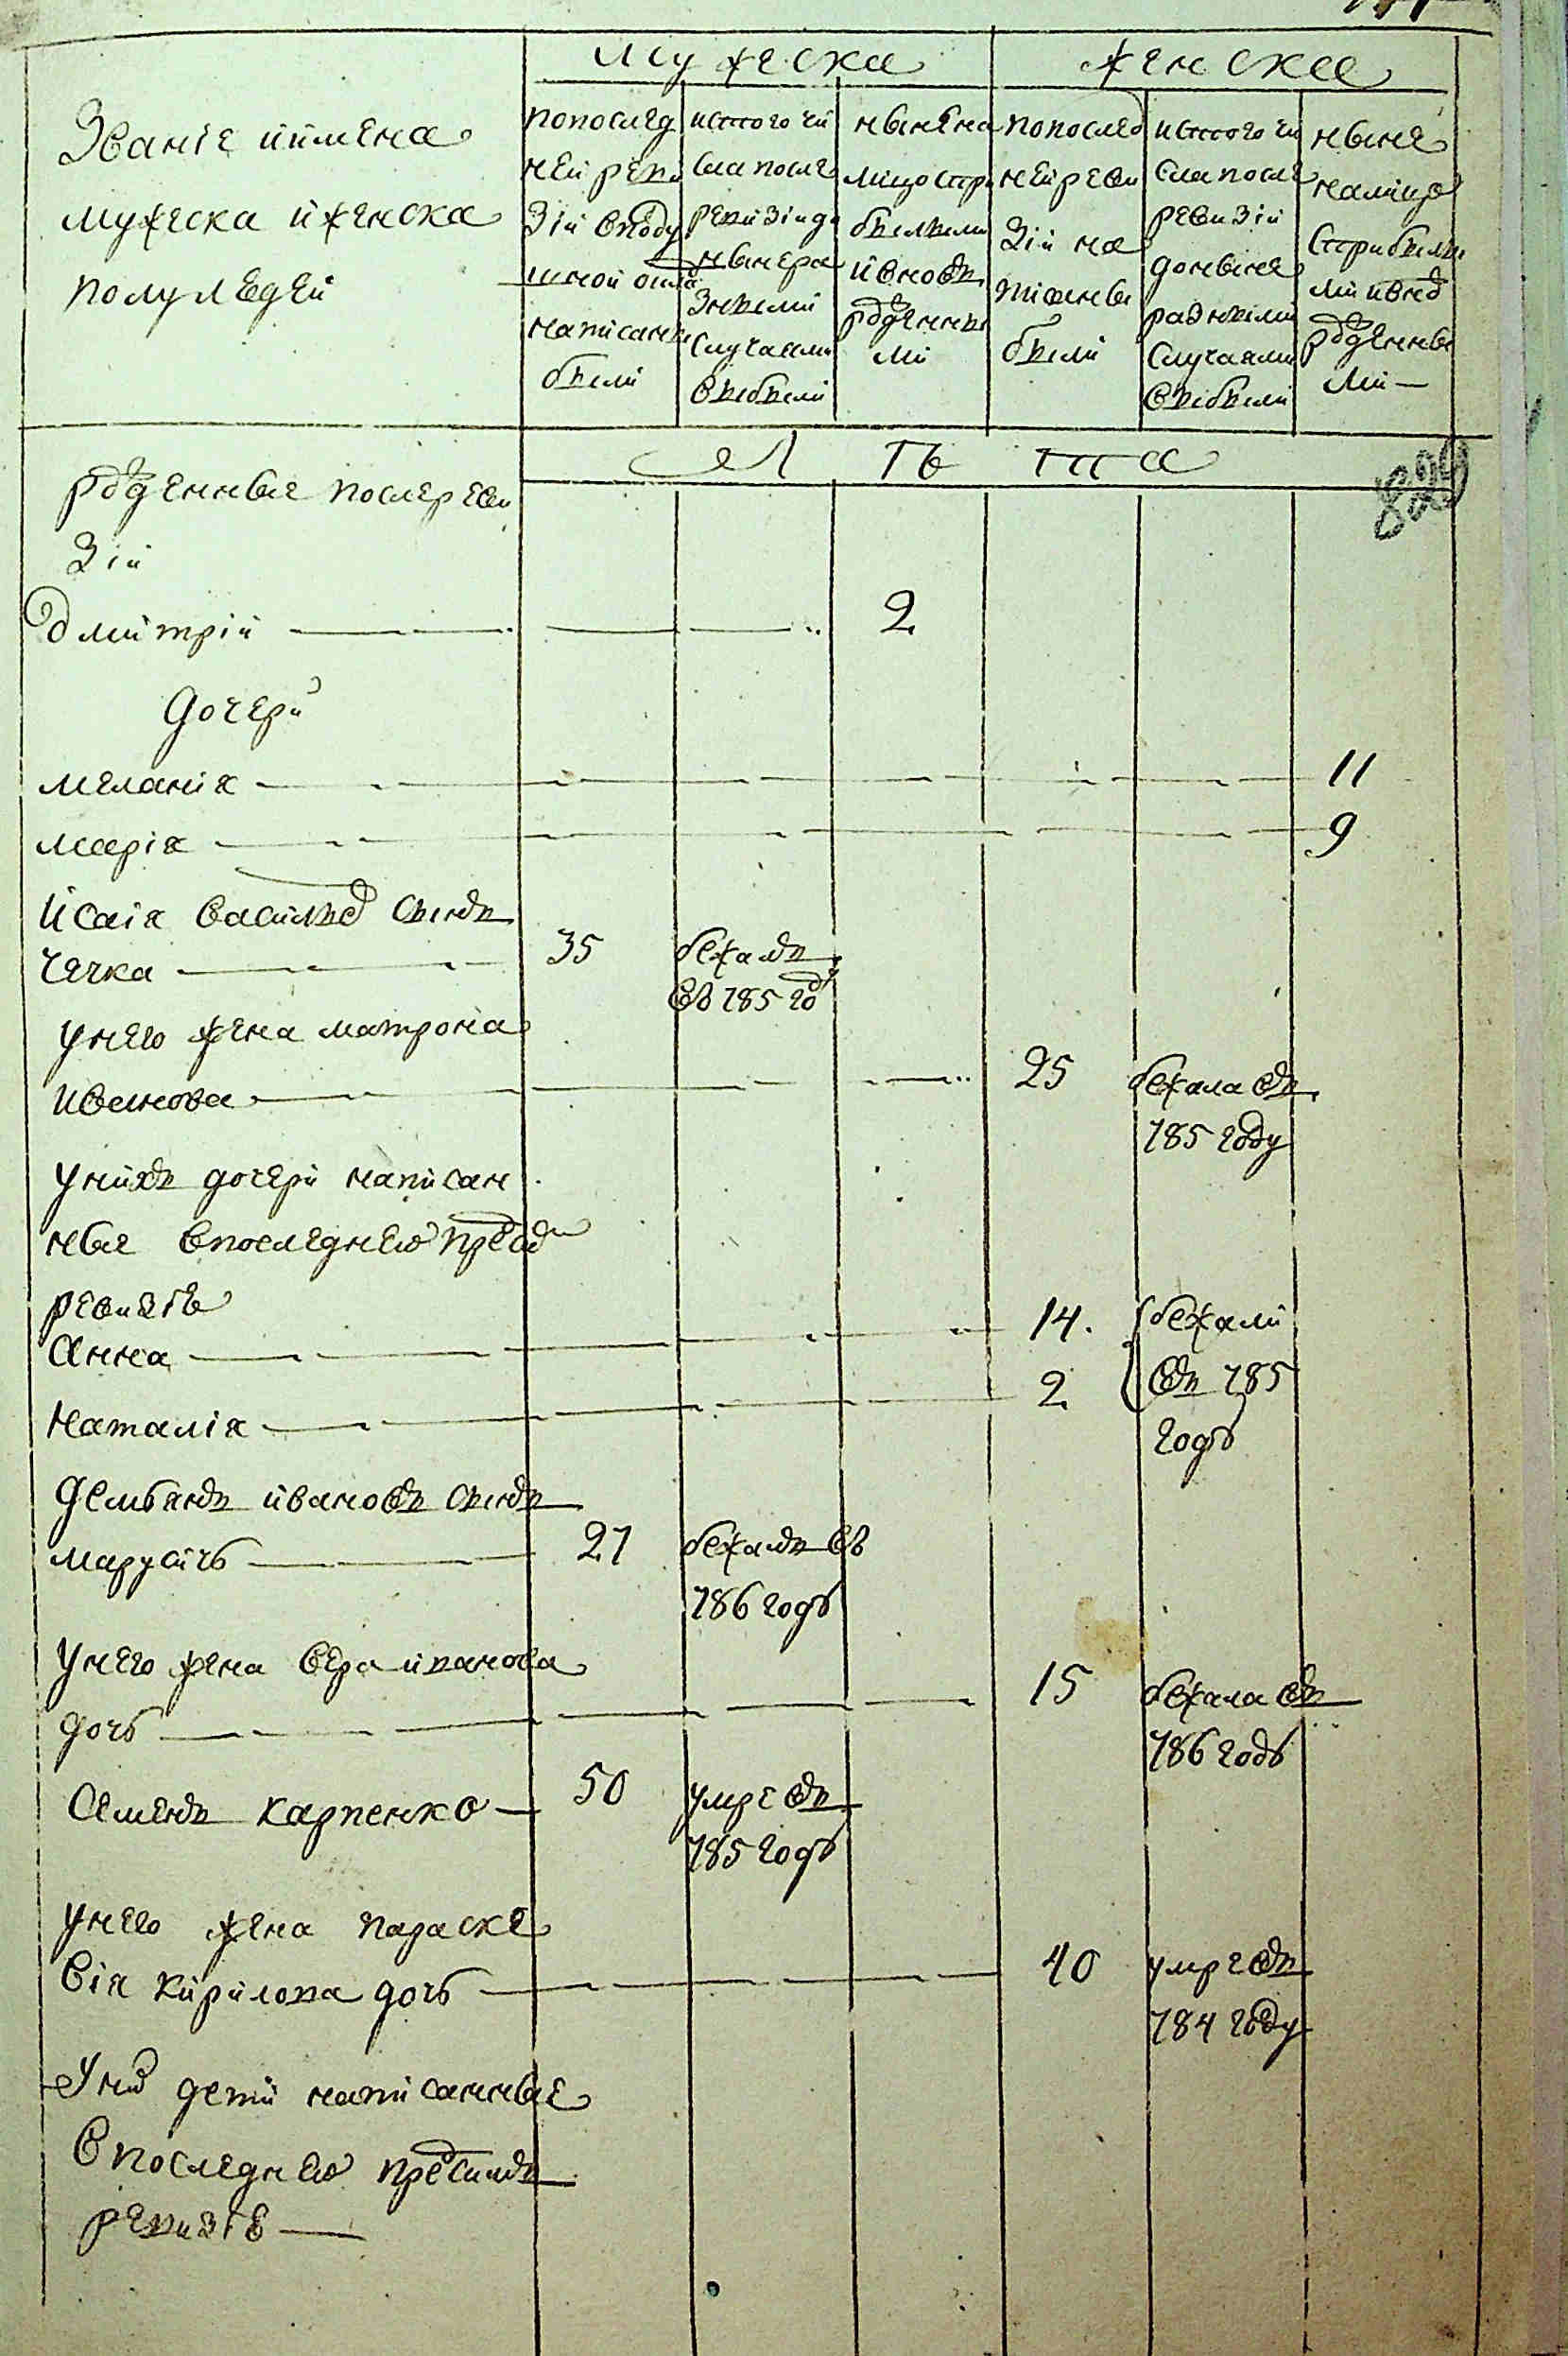 мужеска
женска
Званіе и имена
мужеска и женска
полу людей
попослед
ней реви
зіи вподу
шной окла
написаны
были
истого чи
сла после
ревизіи до
ныне ра
зными
случаями
выбыли
ныне на
лицо стри
былыми
и вновь
рожденны
ми
попослед
ней реви
зіи на
писаны
были
истого чи
сла после
ревизіи
до ныне
разными
случаями
выбыли
ныне
налицо
стрибылы
ми и внов
рожденны
ми —
лѣта
829
рожденные после реви
зіи
Дмитрій 2
дочери
Меланія 11
Марія 9
Исаія Васильев сынъ
Чечка 35 бежалъ
въ 785 году
унего жена Матрона
Иванова 25 бежала въ
785 году
унихъ дочери написан
ные впоследнею пред симъ
ревизіѣ
Анна 14. бежали
Наталія 2 въ 785
годѣ
Демьянъ Ивановъ сынъ
Марусичь 27 бежалъ въ
786 годѣ
унего жена Вера Иванова
дочь 15 бежала въ
786 годѣ
Семенъ Карпенко 50 умре въ
785 годѣ
унего жена Параске
вія Кирилова дочь 40 умре въ
784 году
Уних дети написанные
впоследнею пред симъ
ревизіѣ —